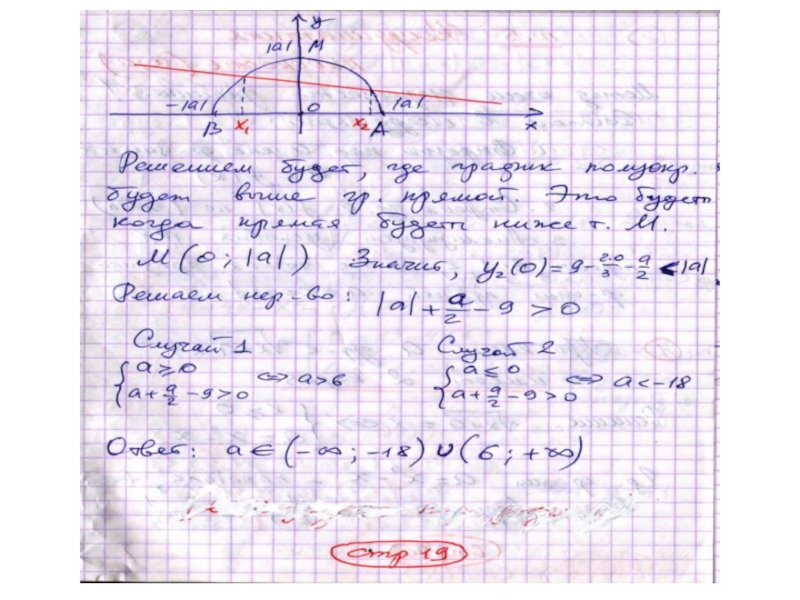 y
|a| M
-|a| O |a|
B x₁ x₂ A x
Решением будет, где график полуокр.
будет выше гр. прямой. Это будет
когда прямая будет ниже т. М.
М(0; |a|) Значит, y₂(0)=9-2·0/3-a/2<|a|
Решаем нер-во: |a|+a/2-9>0
Случай 1 Случай 2
{a⩾0 a+a/2-9>0 ⇔ a>6 {a⩽0 a+a/2-9>0 ⇔ a<-18
Ответ: a∈(-∞;-18)∪(6;+∞)
стр 19